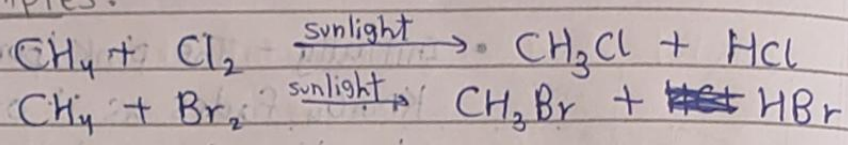 CH₄ + Cl₂ sunlight → CH₃Cl + HCl
CH₄ + Br₂ sunlight → CH₃Br + HBr